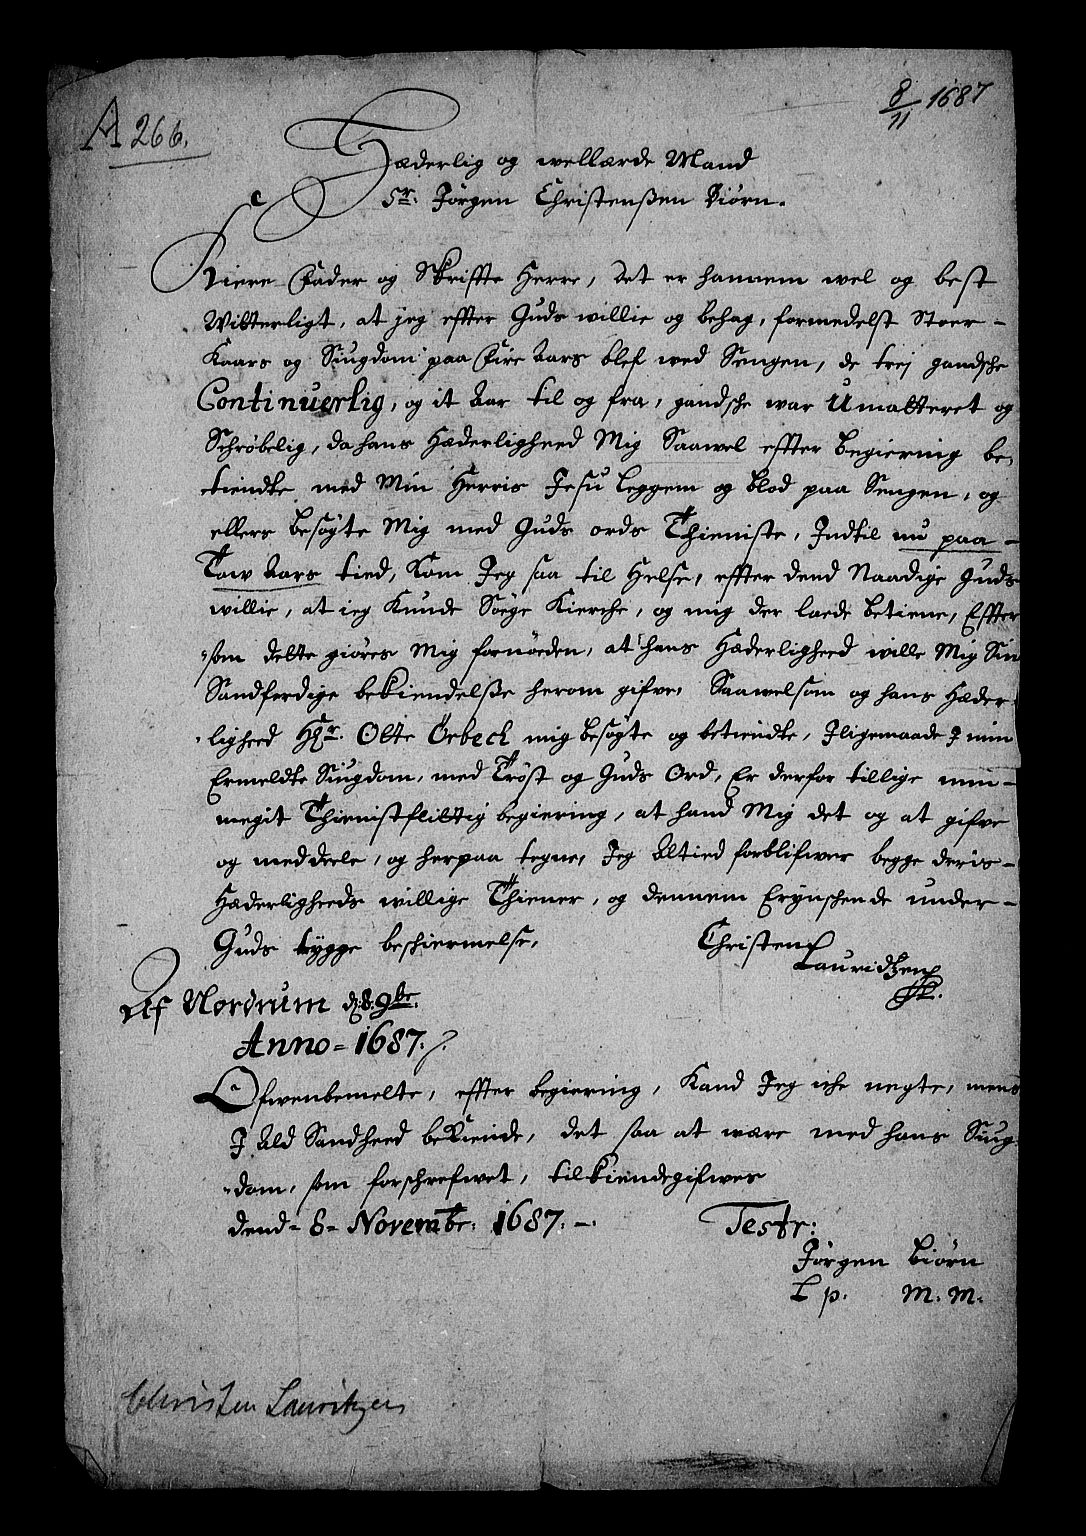 A 266.
8/11 1687
Hæderlig og wellærde Mand
Sr. Jörgen Christenßen Biörn.
Kiere Fader og Skriffte Herre, Det er hannem wel og best
Witterligt, at jeg effter Guds willie og behag, formedelst Stoer-
Kaars og Siugdom paa Fire Aars blef wed Sengen, de trej gandsche
Continuerlig, og it Aar til og fra, gandsche war Umatteret og
Schröbelig, da hans Hæderligheed Mig Saawel effter Begiering be,
tiendte med Min Herris Jesu Leggem og blod paa Sengen, og
ellers besøgte Mig med Guds ords Thieniste, Indtil nu paa-
Tow Aars tied, Kom Jeg saa til Helse, effter dend Naadige Guds
willie, at ieg Kunde Søge Kierche, og mig der laede betiene, Effter
som dette giöres Mig fornøeden, at hans Hæderligheed wille Mig Sin
Sandferdige bekiendelße herom gifve, Saawelsom og hans Hæder
ligheed Hr. Otte Örbeck mig besøgte og betiendte, Iligemaade I min
Ermeldte Siugdom, med Tröst og Guds Ord, Er derfor tillige min-
megit Thienistflittig begiering, at hand Mig det og at gifve
og meddeele, og herpaa tegne, Jeg altied forblifwer begge deris-
Hæderligheeds willige Thiener, og dennem Erynschende under-
Guds trygge beschiermelse,
Christen
Lauridtzen
Af Nordrum d. 8. 9br.
Anno = 1687.
Ofwenbemelte, effter begiering, Kand Jeg iche negte, mens
I Ald Sandheed bekiende, det saa at være med hans Siug
dom, som forschrefwet, tilkiendegifwes
dend - 8 - Novembr: 1687.
Testr:
Jörgen Biörn
L p. M. M.
Christen Lauritzen